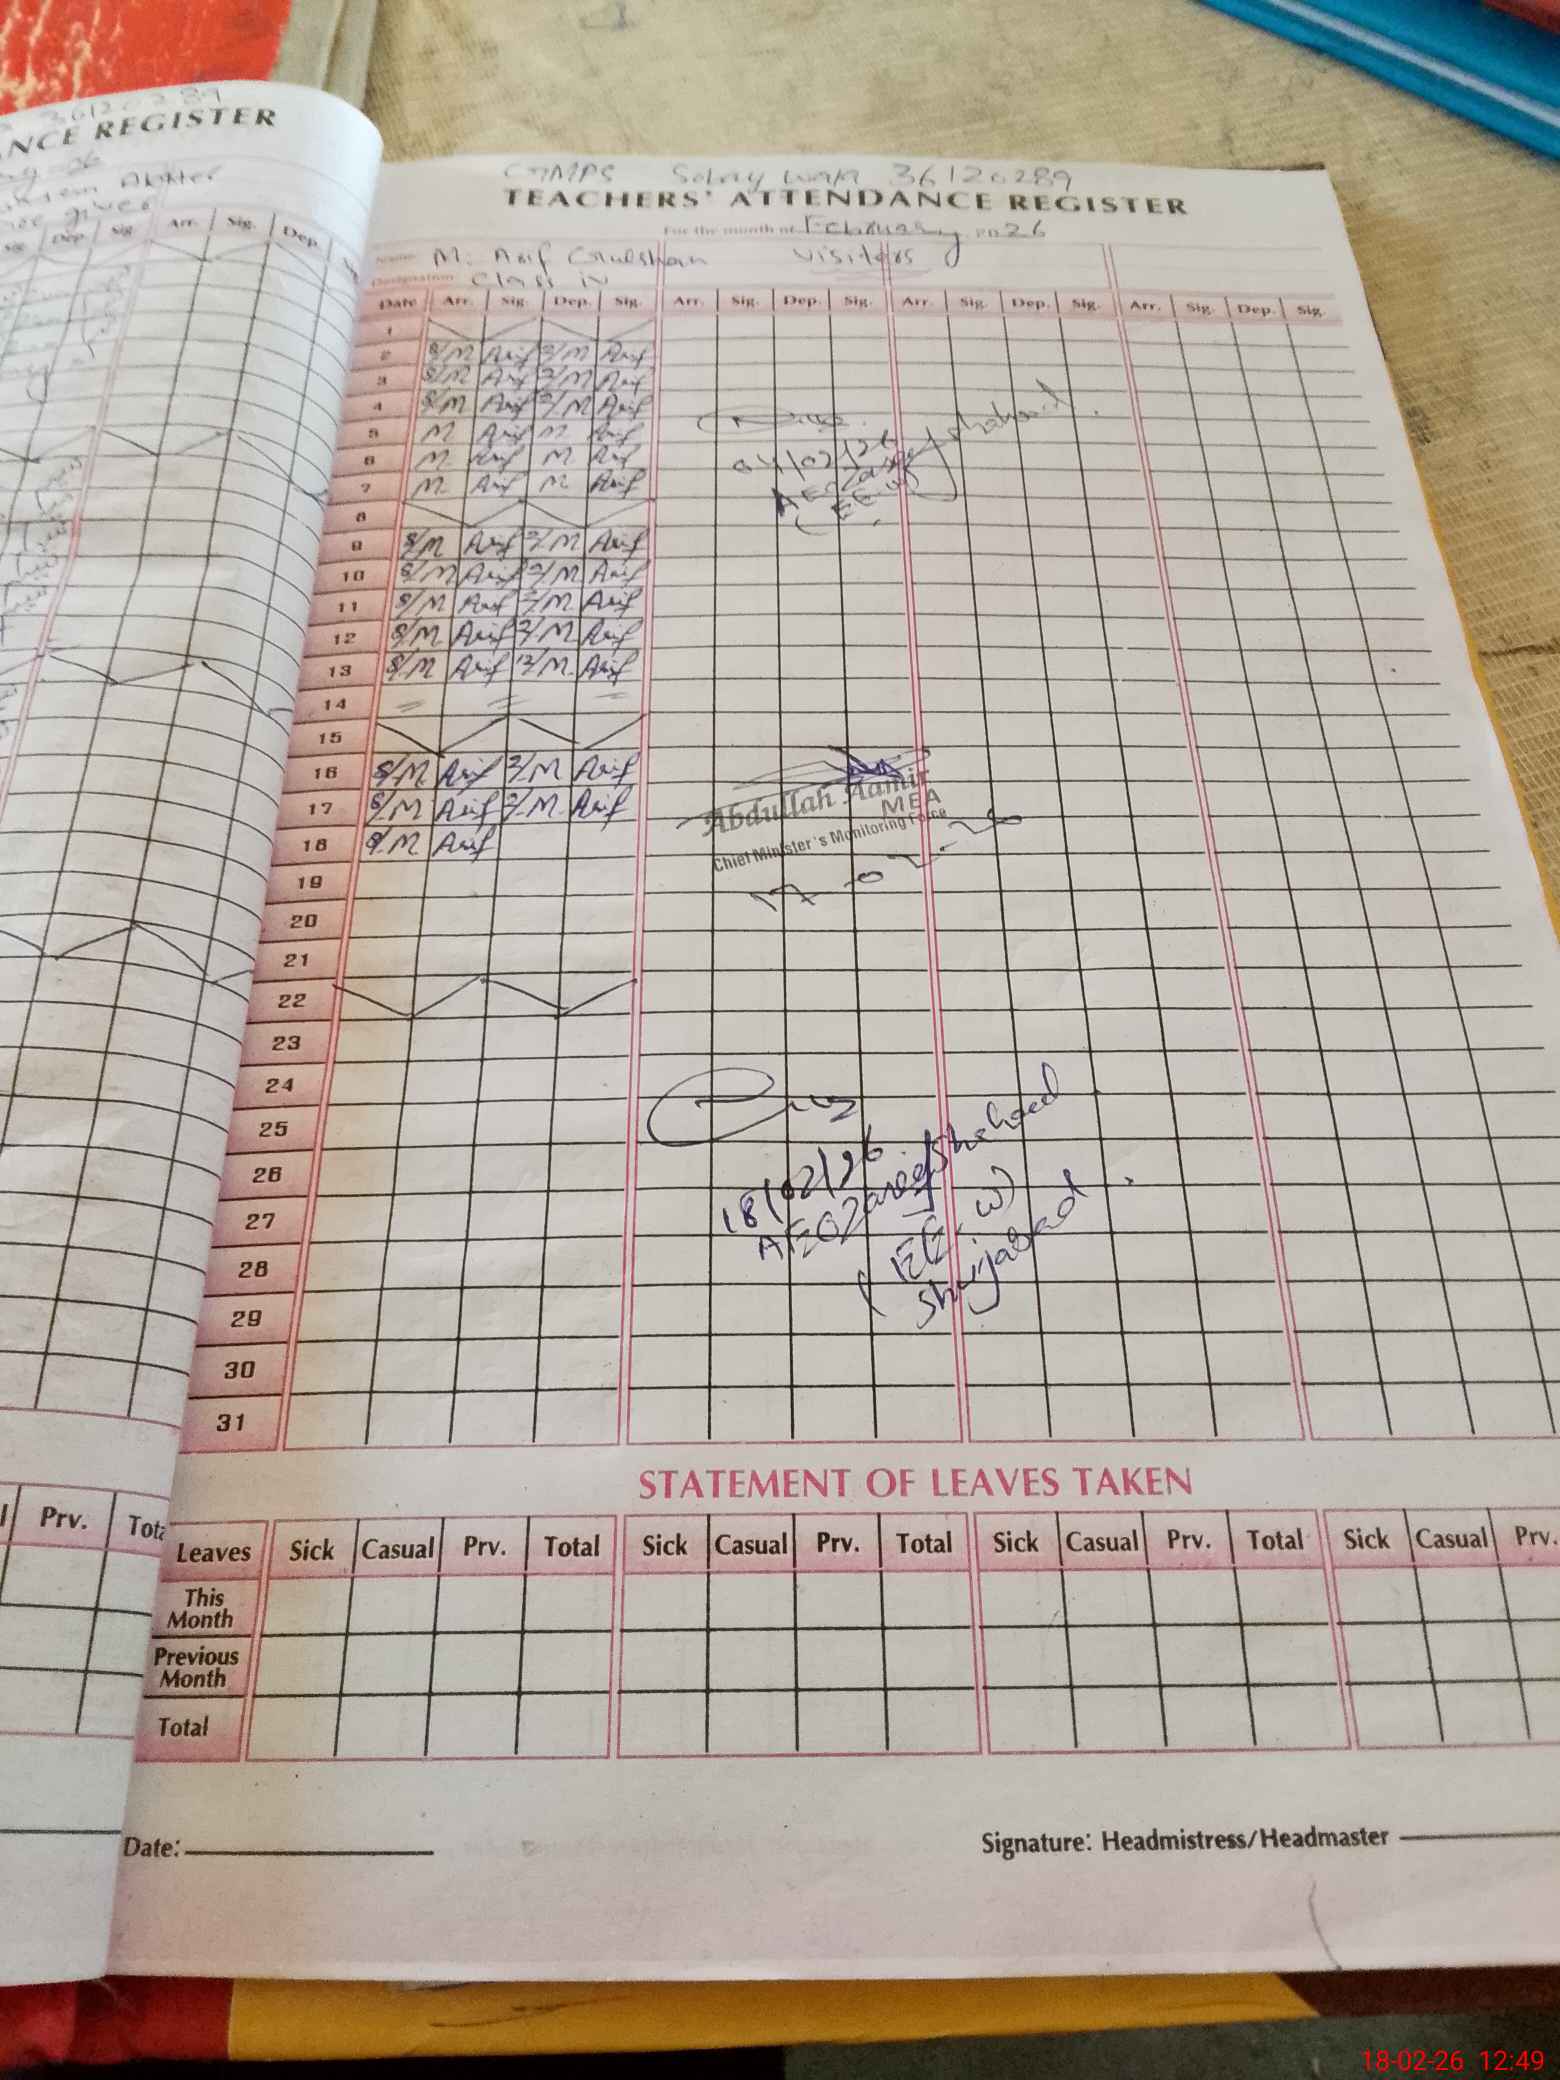 36120289
NCE REGISTER
Arr. Sig. Dep.
GMPS 36120289
TEACHERS' ATTENDANCE REGISTER
For the month of February 2026
Name M. Arif Gulshan Visitors
Designation Class iv
Date Arr. Sig. Dep. Sig. Arr. Sig. Dep. Sig. Arr. Sig. Dep. Sig. Arr. Sig. Dep. Sig.
1
2 8/M Arif 2/M Arif
3 8/M Arif 2/M Arif
4 8/M Arif 2/M Arif
5 M Arif M Arif
6 M Arif M Arif
7 M Arif M Arif
04/02/26
AEO
(EE-W)
8
9 8/M Arif 2/M Arif
10 8/M Arif 2/M Arif
11 8/M Arif 2/M Arif
12 8/M Arif 2/M Arif
13 8/M Arif 12/M Arif
14 = = =
15
16 8/M Arif 2/M Arif
17 8/M Arif 2/M Arif
18 8/M Arif
Abdullah Aamir
MEA
Chief Minister's Monitoring Force
19
20
21
22
23
24
25
26
27
28
29
30
31
18/02/26
AEO Shaheed
(EE-W)
Shujabad
STATEMENT OF LEAVES TAKEN
Prv.
Leaves Sick Casual Prv. Total Sick Casual Prv. Total Sick Casual Prv. Total Sick Casual Prv.
This Month
Previous Month
Total
Date:
Signature: Headmistress/Headmaster
18-02-26 12:49